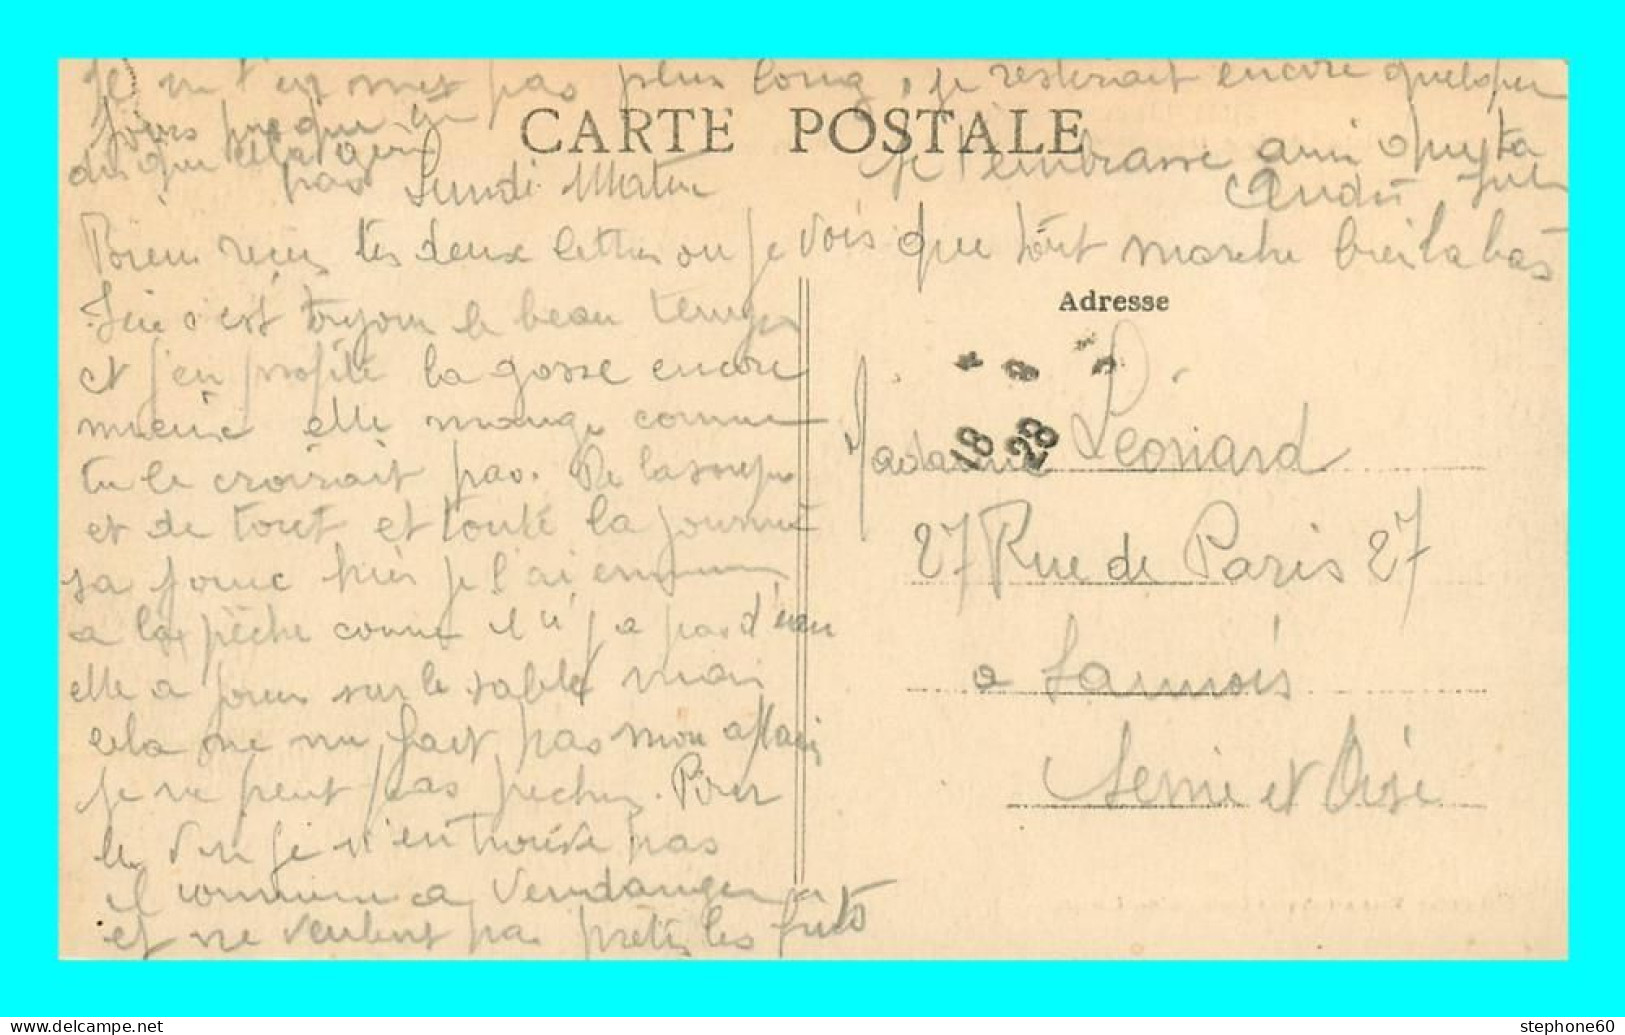 Je ne t'en met pas plus long, je resterait encore quelque
jours
CARTE POSTALE
Je t'embrasse
pas
Lundi Matin
André
Bien reçu tes deux lettres ou je vois que tout marche bien la bas
Ici c'est toujour le beau temps
et j'en profite la gosse encore
mieux elle mange comme
tu le croirait pas. De la soupe
et de tout et toute la journée
sa joue hier je l'ai emmene
a la pèche comme il n'y a pas d'eau
elle a jouer sur le sable mais
cela ne me fait pas mon affaire
je ne peut pas pecher. Pour
le vin je n'en trouve pas
il commence a vendanger
et ne veulent pas preter les futs
Adresse
18
28
Madame Léonard
27 Rue de Paris 27
a Sannois
Seine et Oise
stephone60